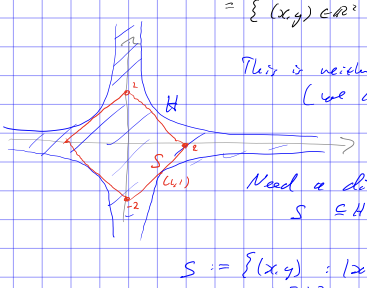 = { (x,y) ∈ ℝ²
This is neith
2
H
2
S
(1,1)
Need a di
-2
S ⊆ H
S := {(x,y) : |x